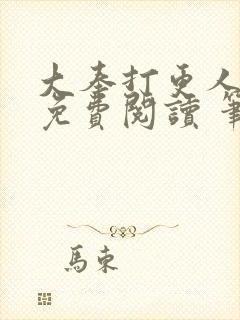 大奉打更人
免費閱讀 筆
馬東